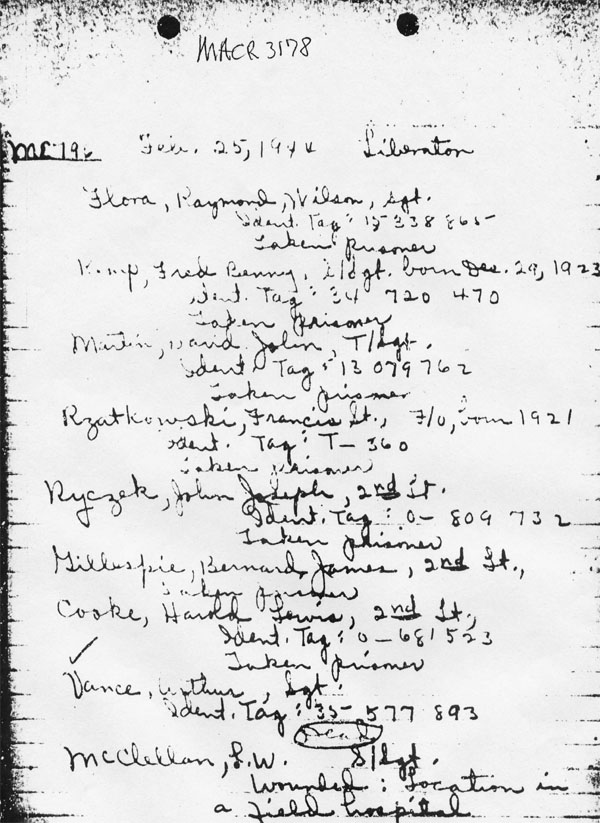 MACR 3178
ME 796 Feb. 25, 1944 Liberator
Flora, Raymond, Wilson, sgt.
Ident. Tag: 15 338 865
Taken prisoner
Kemp, Fred Benny, S/Sgt. born Dec. 29, 1923
Ident. Tag: 34 720 470
Taken prisoner
Martin, David John, T/Sgt.
Ident. Tag: 13 079 762
Taken prisoner
Rzatkowski, Francis St., F/O, born 1921
Ident. Tag: T-360
Taken prisoner
Ryczek, John Joseph, 2nd Lt.
Ident. Tag: O-809 732
Taken prisoner
Gillespie, Bernard, James, 2nd Lt.,
Taken prisoner
Cooke, Harold Lewis, 2nd Lt.,
Ident. Tag: O-681523
Taken prisoner
Vance, Arthur, Sgt.
Ident. Tag: 35 577 893
Dead
McClellan, L.W. S/Sgt.
Wounded: Location in
a field hospital